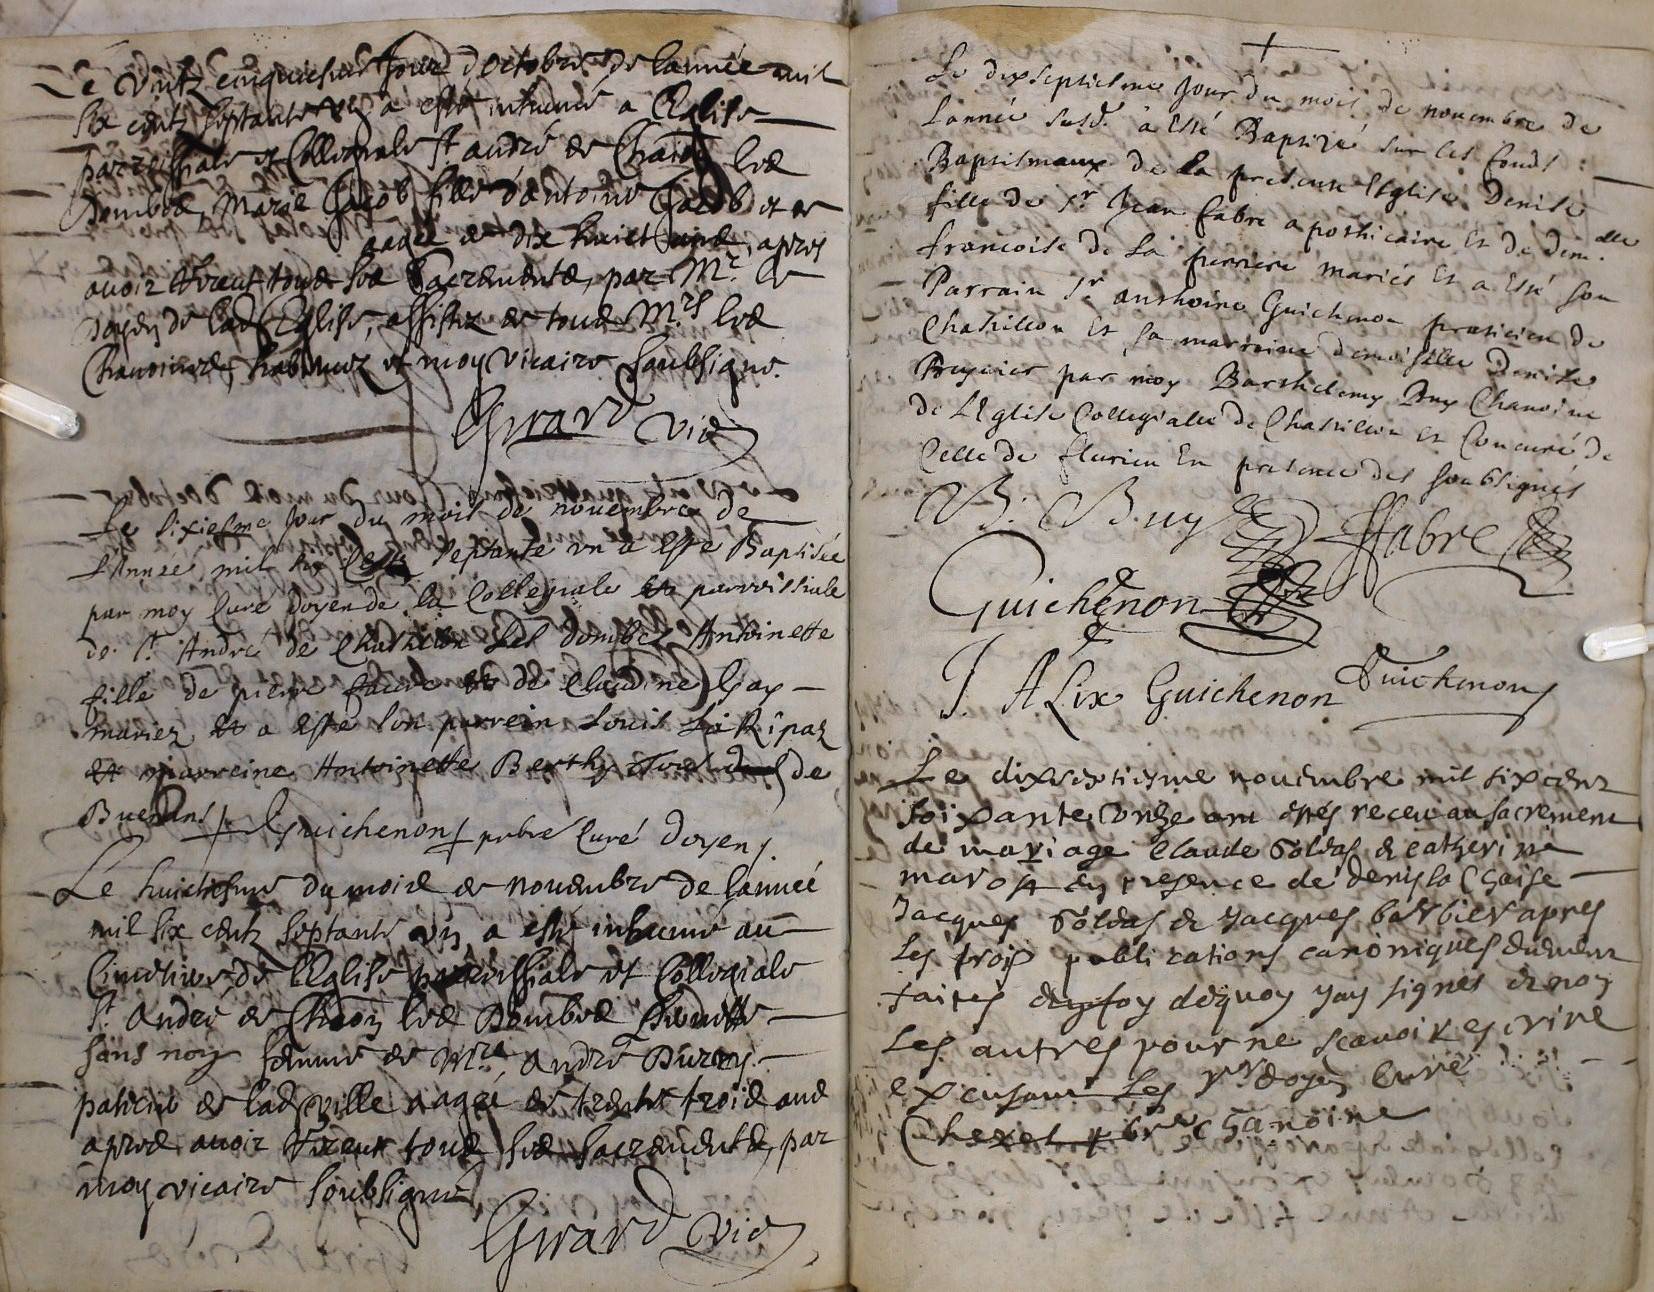 Le vintz cinquiesme Jour d'octobre de lannée mil
six centz septante un a esté inhumé a l'Eglise
parroissiale et Collegiale St andré de Chaon les
Dombes, Marie Jacob fille d'antoine Jacob et de
aagée de dix huict ans, apres
avoir receu tous les Sacrements, par Mre le
doyen de lad Eglise, assisté de tous Mrs les
Chanoines, habituez et moy vicaire soubsigné.
Girard vic
Le sixiesme jour du mois de novembre de
l'Année mil six cents septante un a esté Baptisée
par moy Curé doyen de la Collegiale et parroissiale
de St André de Chastillon les dombes Antoinette
fille de pierre faure et de Claudine Gay
mariez et a esté son parrein Louis
et marreine Antoinette Berthy de
Buenans Guichenon pbre Curé doyen
Le huictiesme du mois de novembre de lannée
mil six centz septante un, a esté inhumé au
Cimetiere de l'Eglise parroissiale et Collegiale
St André de Chaon les Dombes
sans nom femme de Mre André
de lad ville aagée de trente trois ans
apres avoir receu tous les sacrements, par
moy vicaire soubsigné
Girard vic
Le dixseptiesme Jour du mois de novembre de
Lannée susd. a Esté Baptizé sur les fonds
Baptismaux de la presente Eglise Denise
fille de Sr Jean fabre apothicaire Et de dem.elle
francoise de La ferriere mariés Et a Esté son
Parrain Sr anthoine Guichenon praticien de
Chastillon Et sa marraine demoiselle denise
par moy Barthelemy Buy Chanoine
de L'Eglise Collegialle de Chastillon Et Concuré de
Celle de fleurieu En presence des soubsignés
B. Buy ffabre
Guichenon
J. ALix Guichenon Guichenon
Le dixseptiesme novembre mil six cenz
soixante unze ont estés receu au sacrement
de mariage Claude Soldas & catherine
en presence de denis la Chaise
Jacques Soldas & Jacques barbier apres
Les trois publications canoniques duement
faites de quoy jay signés & non
Les autres pour ne scavoir escrire
Les doyen curé
pbre chanoine